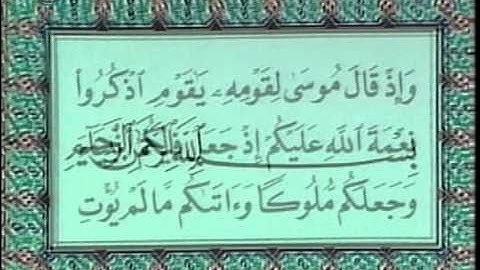 وَإِذْ قَالَ مُوسَىٰ لِقَوْمِهِۦ يَٰقَوْمِ ٱذْكُرُوا۟
نِعْمَةَ ٱللَّهِ عَلَيْكُمْ إِذْ جَعَلَ فِيكُمْ
بسم الله الرحمن الرحيم
وَجَعَلَكُم مُّلُوكًا وَءَاتَىٰكُم مَّا لَمْ يُؤْتِ